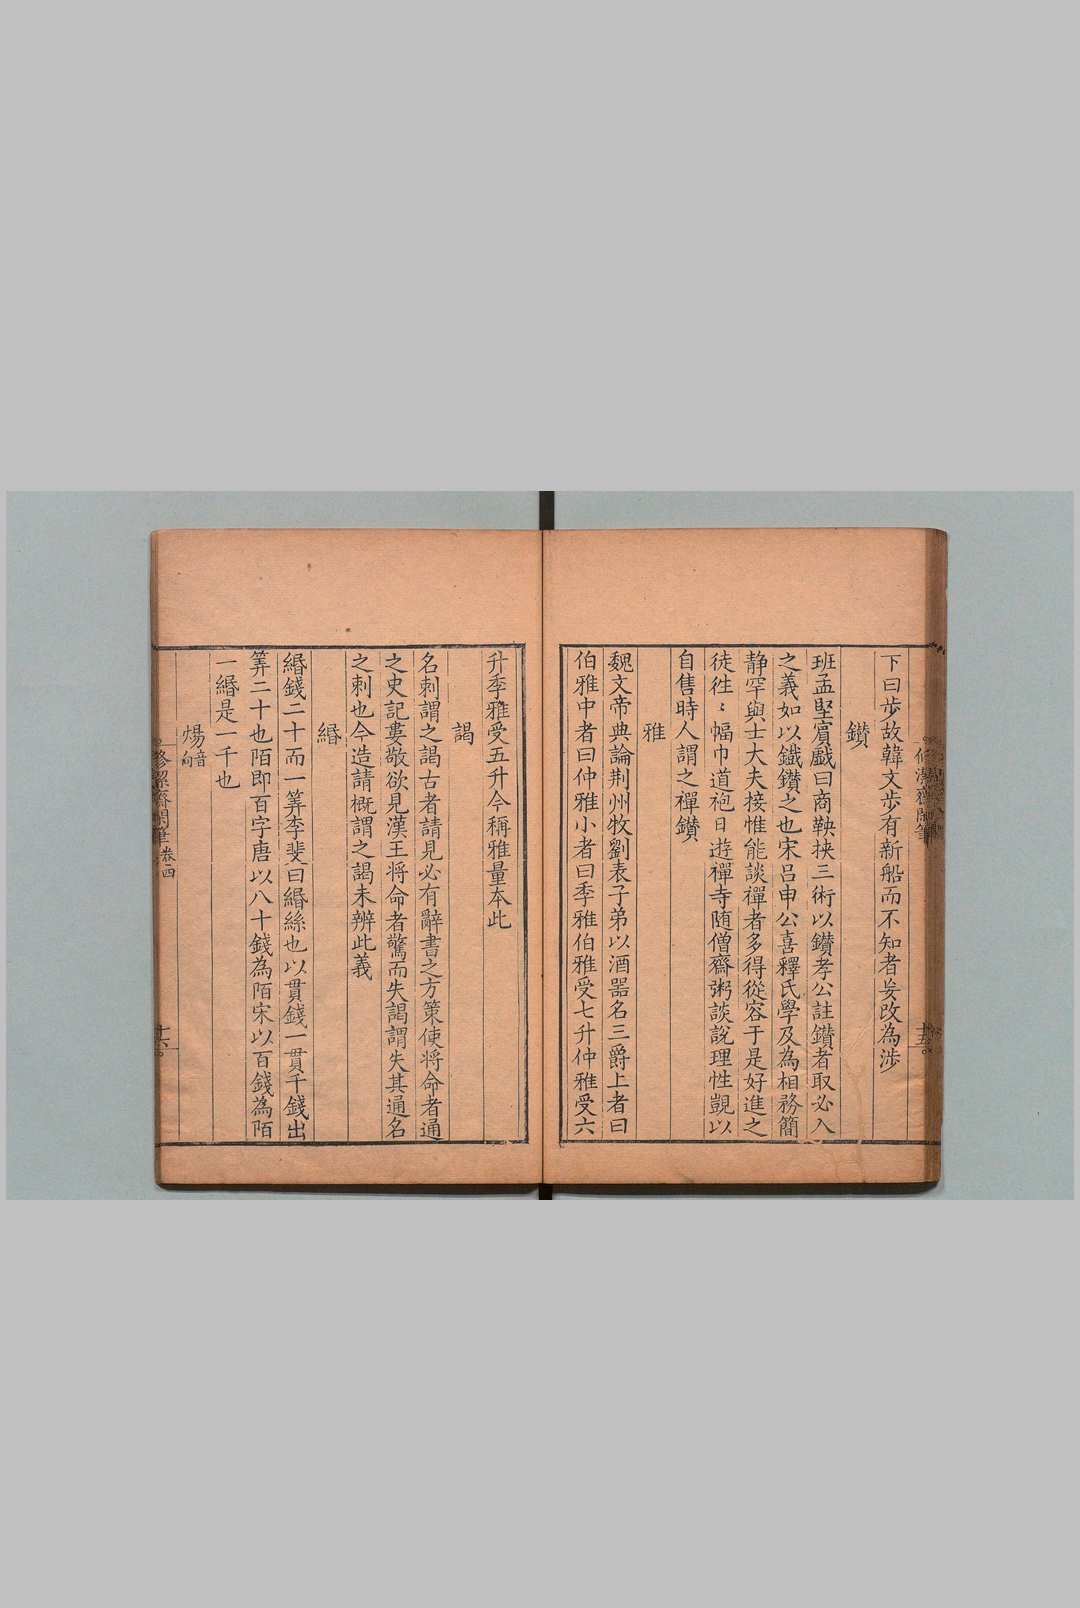 下曰步故韓文步有新船而不知者妄改為涉
鑽
班孟堅賓戲曰商鞅挾三術以鑽孝公註鑽者取必入
之義如以鐵鑽之也宋呂申公喜釋氏學及為相務簡
静罕與士大夫接惟能談禪者多得從容于是好進之
徒徃〻幅巾道袍日遊禪寺随僧齋粥談說理性覬以
自售時人謂之禪鑽
雅
魏文帝典論荆州牧劉表子弟以酒噐名三爵上者曰
伯雅中者曰仲雅小者曰季雅伯雅受七升仲雅受六
升季雅受五升今稱雅量本此
謁
名刺謂之謁古者請見必有辭書之方策使将命者通
之史記婁敬欲見漢王将命者驚而失謁謂失其通名
之刺也今造請概謂之謁未辨此義
緡
緡錢二十而一筭李斐曰緡絲也以貫錢一貫千錢出
筭二十也陌即百字唐以八十錢為陌宋以百錢為陌
一緡是一千也
煬音向
修潔齋閒筆 卷四
十六